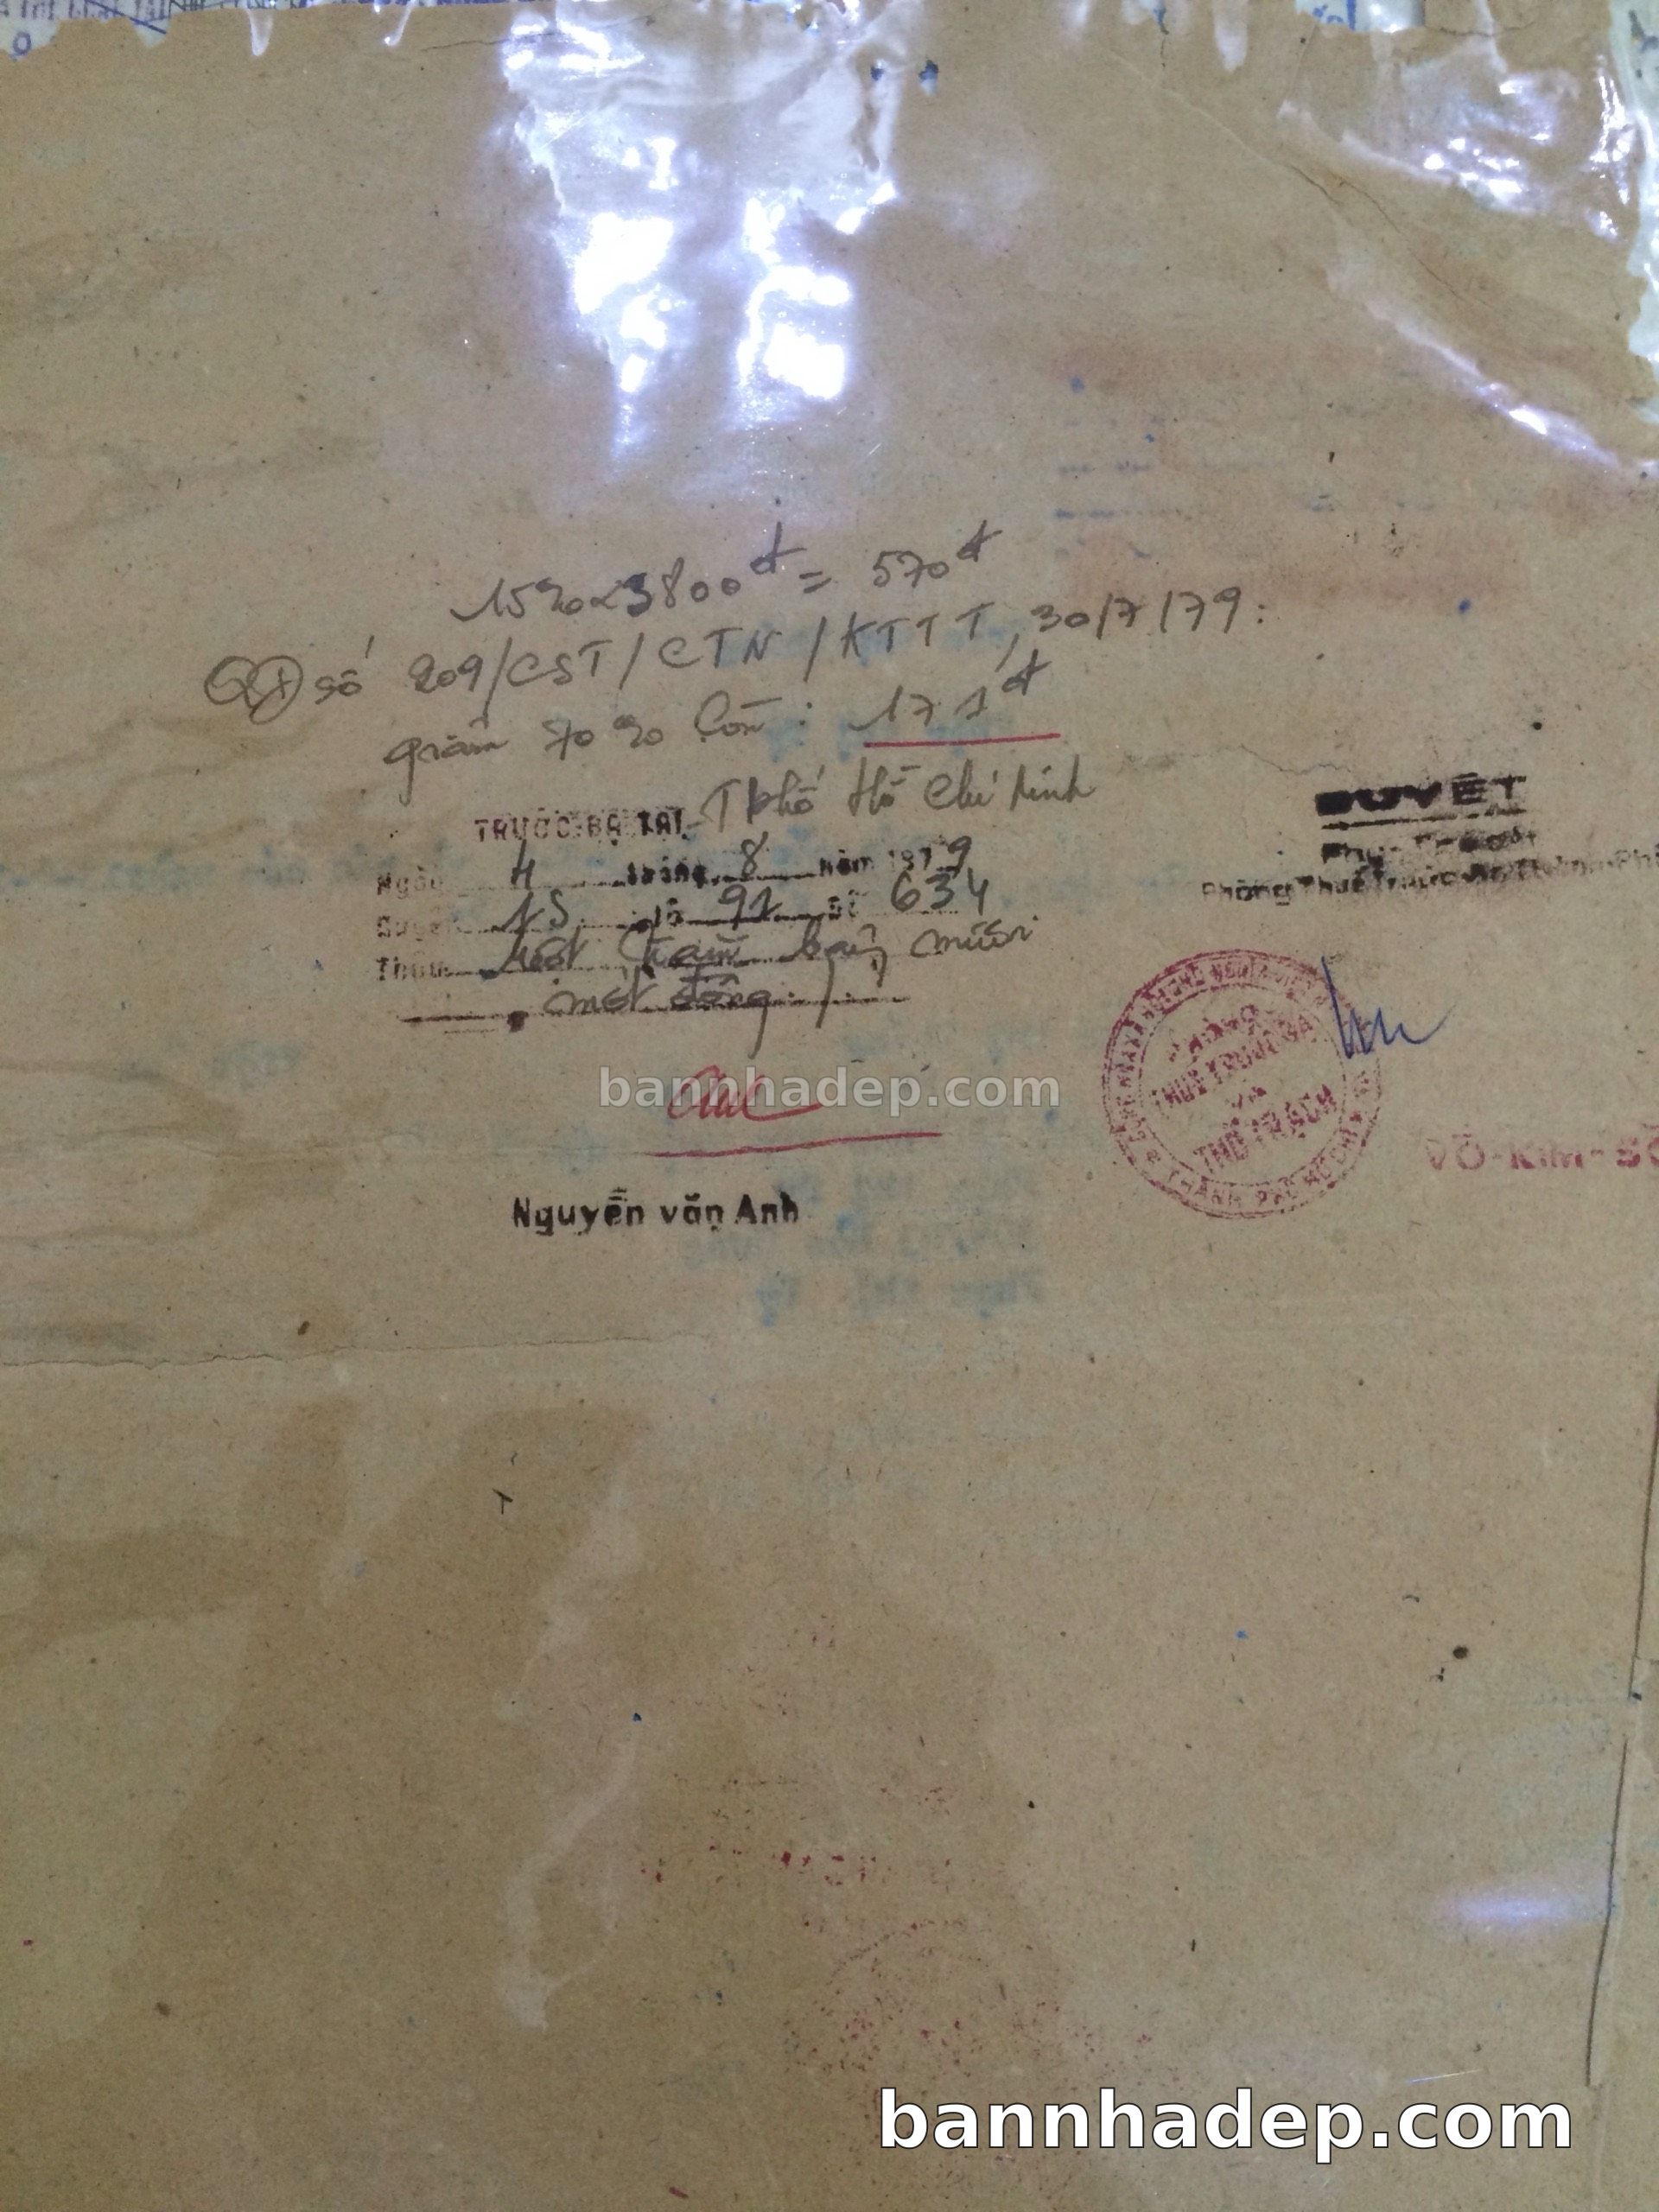 15% x 3800đ = 570đ
QĐ số 209/CST/CTN/KTTT, 30/7/79:
giảm 70% Còn: 171đ
TRƯỚC BẠ TẠI TPhố Hồ Chí Minh
Ngày 4 tháng 8 năm 1979
Quyển 15 tờ 91 số 634
Thâu Một trăm bảy mươi
một đồng
Nguyễn văn Anh
DUYỆT
Phòng Thuế Trước Bạ
PHÒNG
THUẾ TRƯỚC BẠ
VÀ
THỔ TRẠCH
THÀNH PHỐ HỒ CHÍ
VÕ-KIM-
bannhadep.com
bannhadep.com